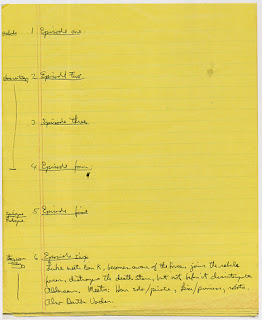 1 Episode one
2 Episode Two
3 Episode Three
4 Episode four
5 Episode five
6 Episode Six
Luke meets Ben K, becomes aware of the force, joins the rebels
forces, destroys the death star, but not before it disintegrates
Alderaan. Meets: Han solo/pirate, robots,
Also Darth Vader.